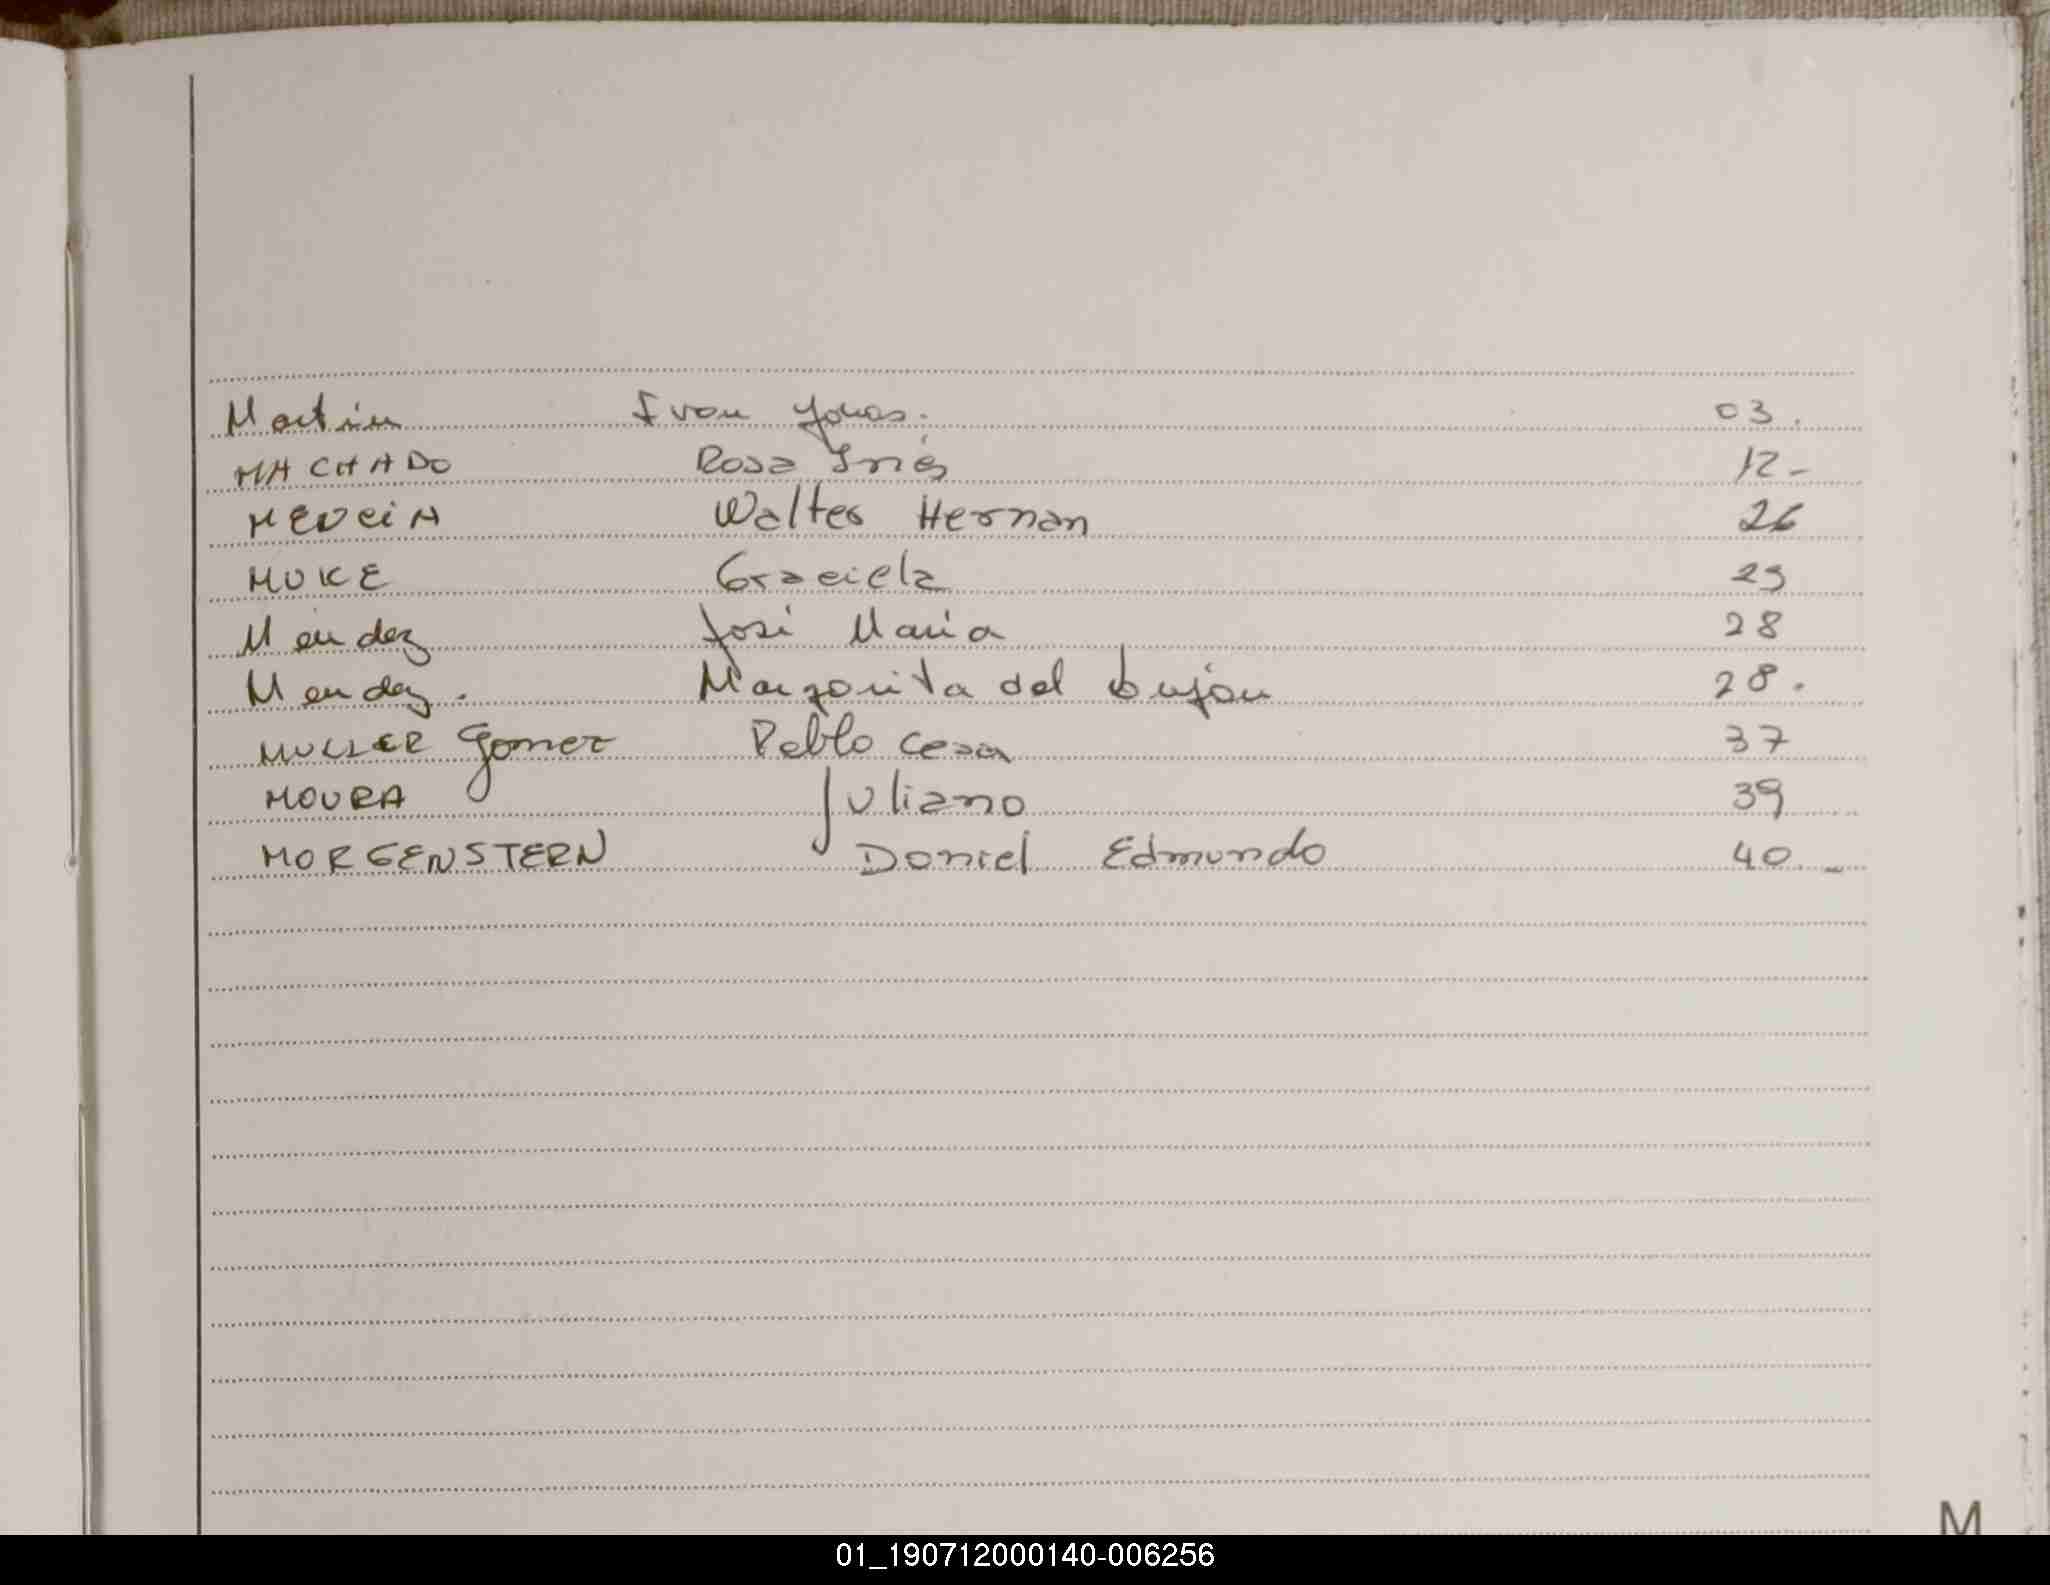 Martin Ivan Jonas. 03.
MACHADO Rosa Inés 12-
MEDCIA Walter Hernan 26
MUKE Graciela 29
Mendez José Maria 28
Mendez. Margarita del Lujan 28.
MULLER Gomez Pablo Cesar 37
MOURA Juliano 39
MORGENSTERN Daniel Edmundo 40.-
M
01_190712000140-006256